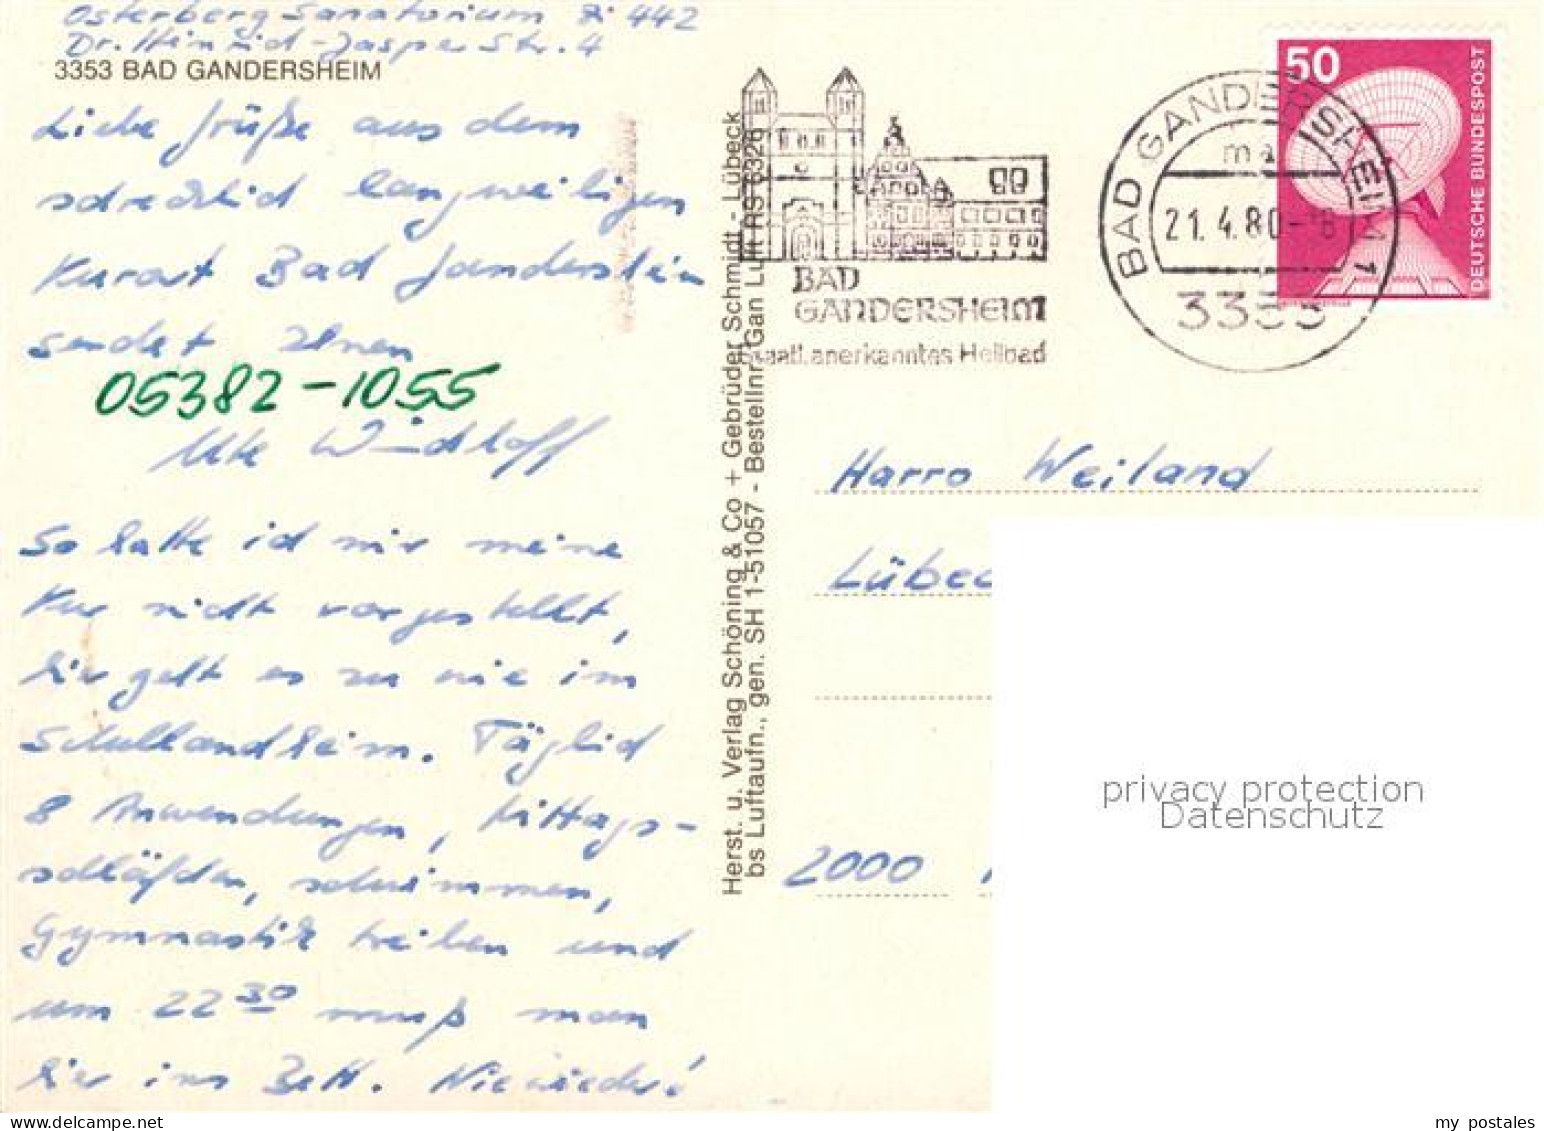 Osterberg Sanatorium Zi 442
Dr. Heinrich-Jasper Str. 4
3353 BAD GANDERSHEIM
Liebe Grüße aus dem
schrecklich langweiligen
Kurort Bad Gandersheim
sendet Ihnen
05382-1055
Ute Windhoff
So hatte ich mir meine
Kur nicht vorgestellt,
hier geht es zu wie im
Schullandheim. Täglich
8 Anwendungen, Mittags-
schläfchen, schwimmen,
Gymnastik treiben und
um 22 30 muß man
hier ins Bett. Nie wieder!
Herst. u. Verlag Schöning & Co + Gebrüder Schmidt - Lübeck
bs Luftaufn., gen. SH 1-51057 - Bestellnr. Gan Luft AS 6326
BAD
GANDERSHEIM
staatl. anerkanntes Heilbad
BAD GANDERSHEIM 1
ma
21.4.80
3353
50
DEUTSCHE BUNDESPOST
Harro Weiland
Lübec
2000
privacy protection
Datenschutz
my postales